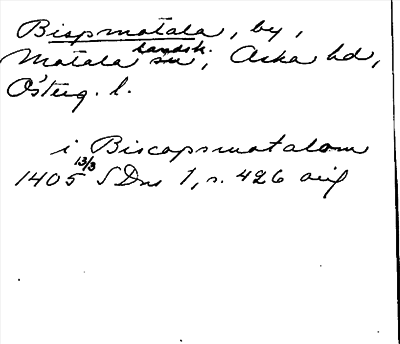 Bispmotala, by,
Motala landsk. sn, Aska hd,
Österg. l.
i Biscopsmotalom
1405 13/3 SDns 1, s. 426 orig